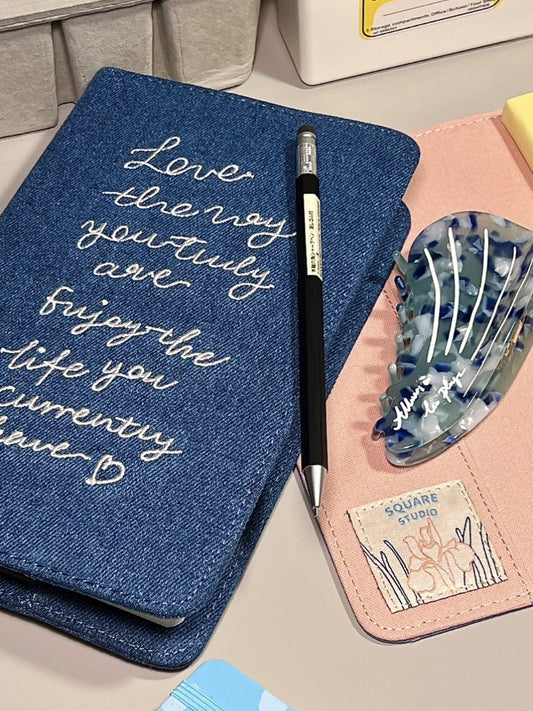 Love
the way
you truly
are
Enjoy the
life you
currently
have
SQUARE
STUDIO
Storage compartments. Office/School/Tool